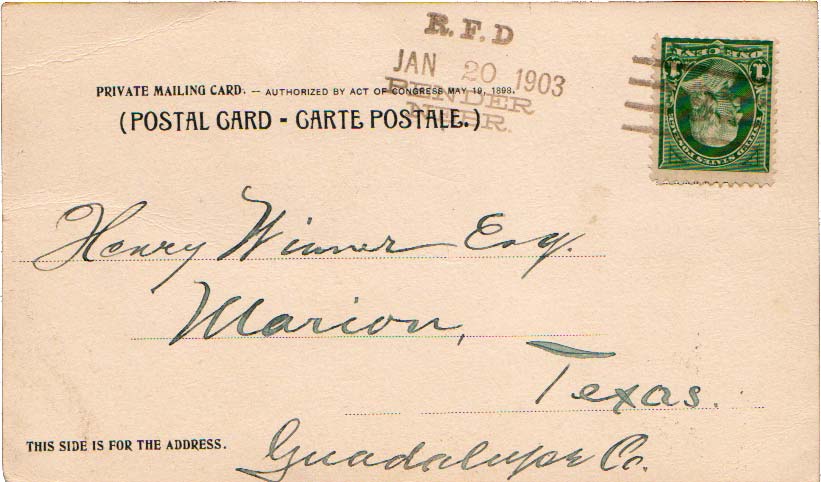 R.F.D
JAN 20 1903
PENDER
NEBR.
ONE CENT
1 1
UNITED STATES POSTAGE
PRIVATE MAILING CARD. — AUTHORIZED BY ACT OF CONGRESS MAY 19, 1898.
(POSTAL CARD - CARTE POSTALE.)
Henry Winner Esq.
Marion,
Texas.
THIS SIDE IS FOR THE ADDRESS.
Guadalupe Co.